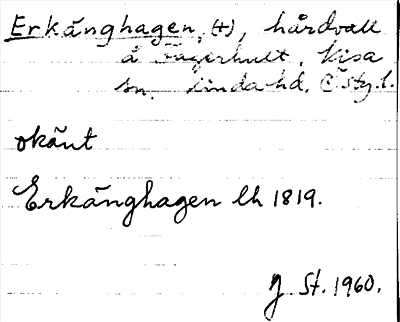 Erkänghagen, (+), hårdvall
å Fagerhult, Kisa
sn. Kinda hd, Östg.l.
okänt
Erkänghagen lh 1819.
J. St. 1960.